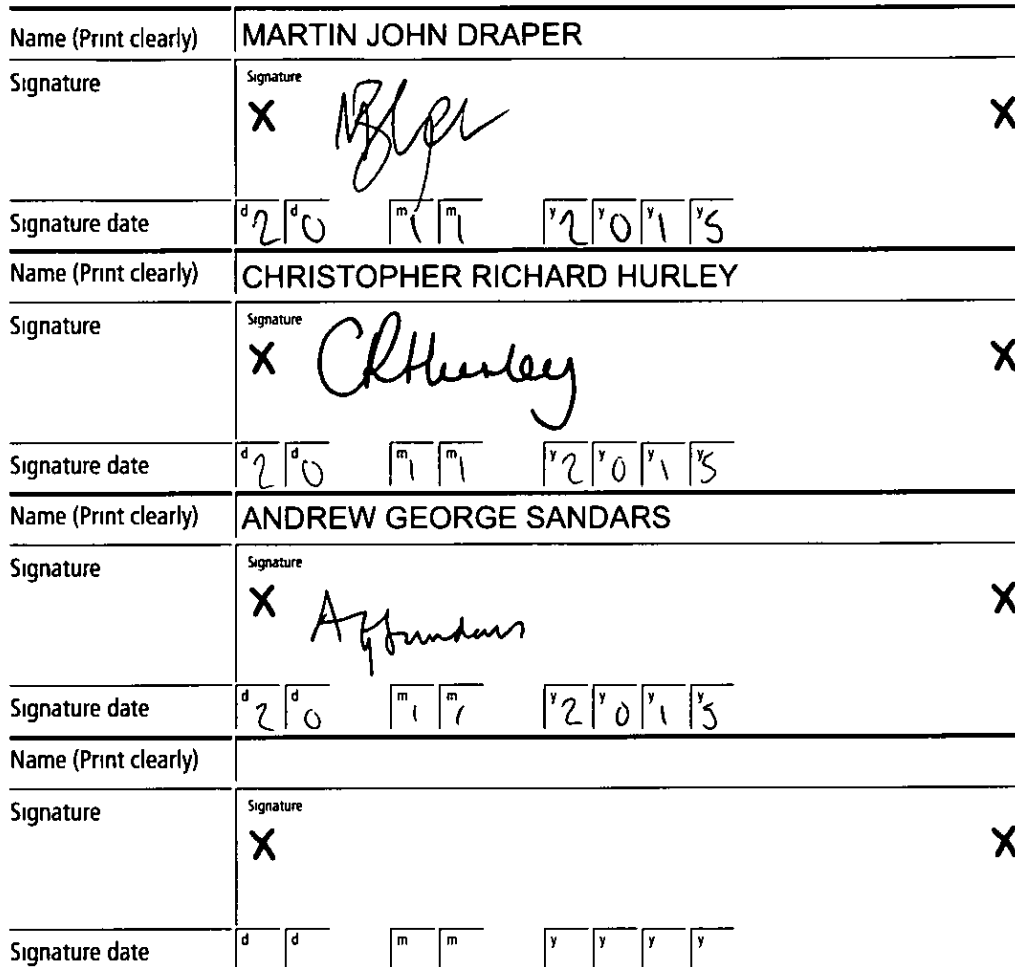 Name (Print clearly) MARTIN JOHN DRAPER
Signature Signature
X X
Signature date d 2 d 0 m 1 m 1 y 2 y 0 y 1 y 5
Name (Print clearly) CHRISTOPHER RICHARD HURLEY
Signature Signature
X CRHurley X
Signature date d 2 d 0 m 1 m 1 y 2 y 0 y 1 y 5
Name (Print clearly) ANDREW GEORGE SANDARS
Signature Signature
X AGSandars X
Signature date d 2 d 0 m 1 m 1 y 2 y 0 y 1 y 5
Name (Print clearly)
Signature Signature
X X
Signature date d d m m y y y y